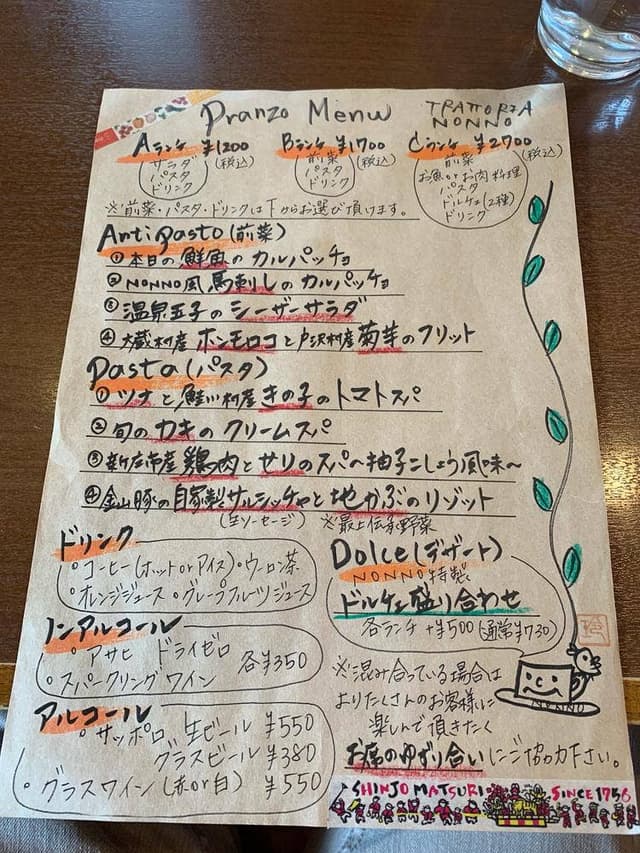 Pranzo Menu
TRATTORIA
NONNO
Aランチ ¥1200
(税込)
サラダ
パスタ
ドリンク
Bランチ ¥1700
(税込)
前菜
パスタ
ドリンク
Cランチ ¥2700
(税込)
前菜
お魚orお肉料理
パスタ
ドルチェ(2種)
ドリンク
※前菜・パスタ・ドリンクは下からお選び頂けます。
Antipasto(前菜)
①本日の鮮魚のカルパッチョ
②NONNO風馬刺しのカルパッチョ
③温泉玉子のシーザーサラダ
④大蔵村産ホンモロコと戸沢村産菊芋のフリット
Pasta(パスタ)
①ツナと鮭川村産きの子のトマトスパ
②旬のカキのクリームスパ
③新庄市産鶏肉とセリのスパ〜柚子こしょう風味〜
④金山豚の自家製サルシッチャと地かぶのリゾット
(生ソーセージ)
※最上伝承野菜
ドリンク
・コーヒー(ホットorアイス)・ウーロン茶
・オレンジジュース・グレープフルーツジュース
Dolce(デザート)
NONNO特製
ドルチェ盛り合わせ
各ランチ +¥500 (通常¥730)
ノンアルコール
・アサヒ ドライゼロ
・スパークリングワイン
各¥350
アルコール
・サッポロ 生ビール ¥550
グラスビール ¥380
・グラスワイン(赤or白) ¥550
※混み合っている場合は
よりたくさんのお客様に
楽しんで頂きたく
お席のゆずり合いにご協力下さい。
SHINJO MATSURI SINCE1756